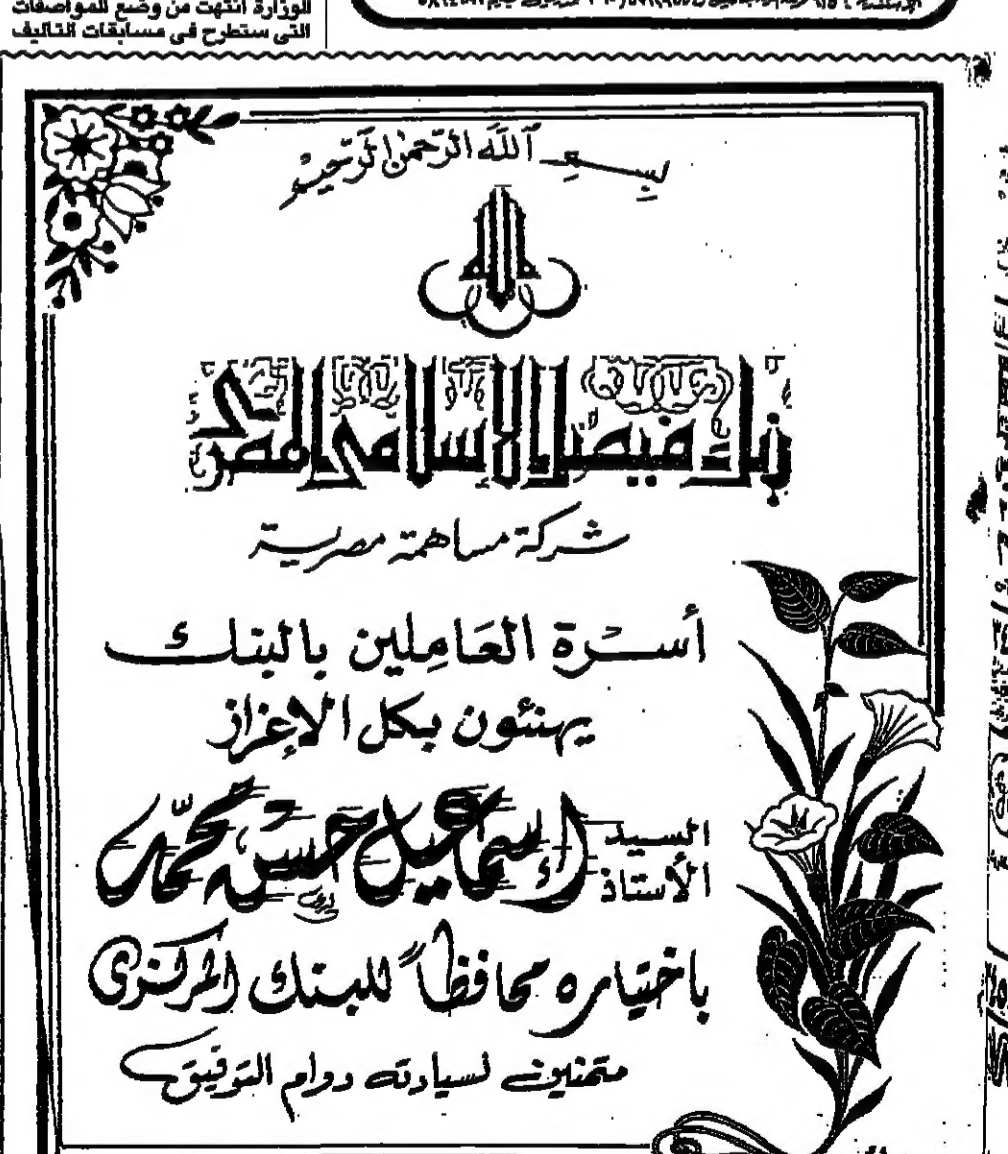 الوزارة انتهت من وضع للمواصفات
التى ستطرح فى مسابقات التاليف
بسم الله الرحمن الرحيم
بنك فيصل الإسلامى المصرى
شركة مساهمة مصرية
أسرة العاملين بالبنك
يهنئون بكل الإعزاز
السيد الأستاذ إسماعيل حسن محمد
باختياره محافظاً للبنك المركزى
متمنين لسيادته دوام التوفيق